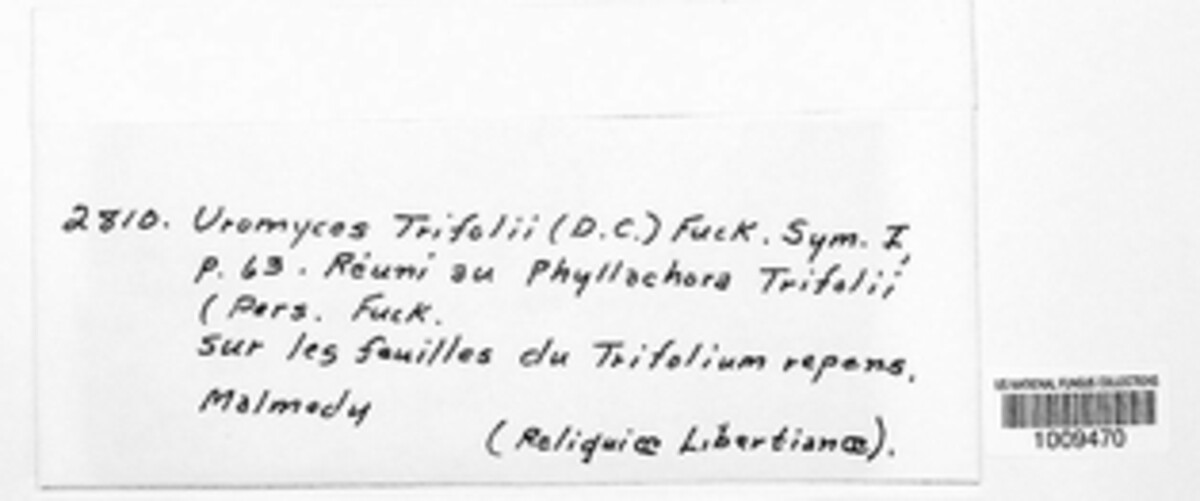 2810. Uromyces Trifolii (D.C.) Fuck. Sym. I,
p. 63. Réuni au Phyllachora Trifolii
(Pers. Fuck.
sur les feuilles du Trifolium repens.
Malmedy
(Reliquiæ Libertianæ).
US NATIONAL FUNGUS COLLECTIONS
1009470